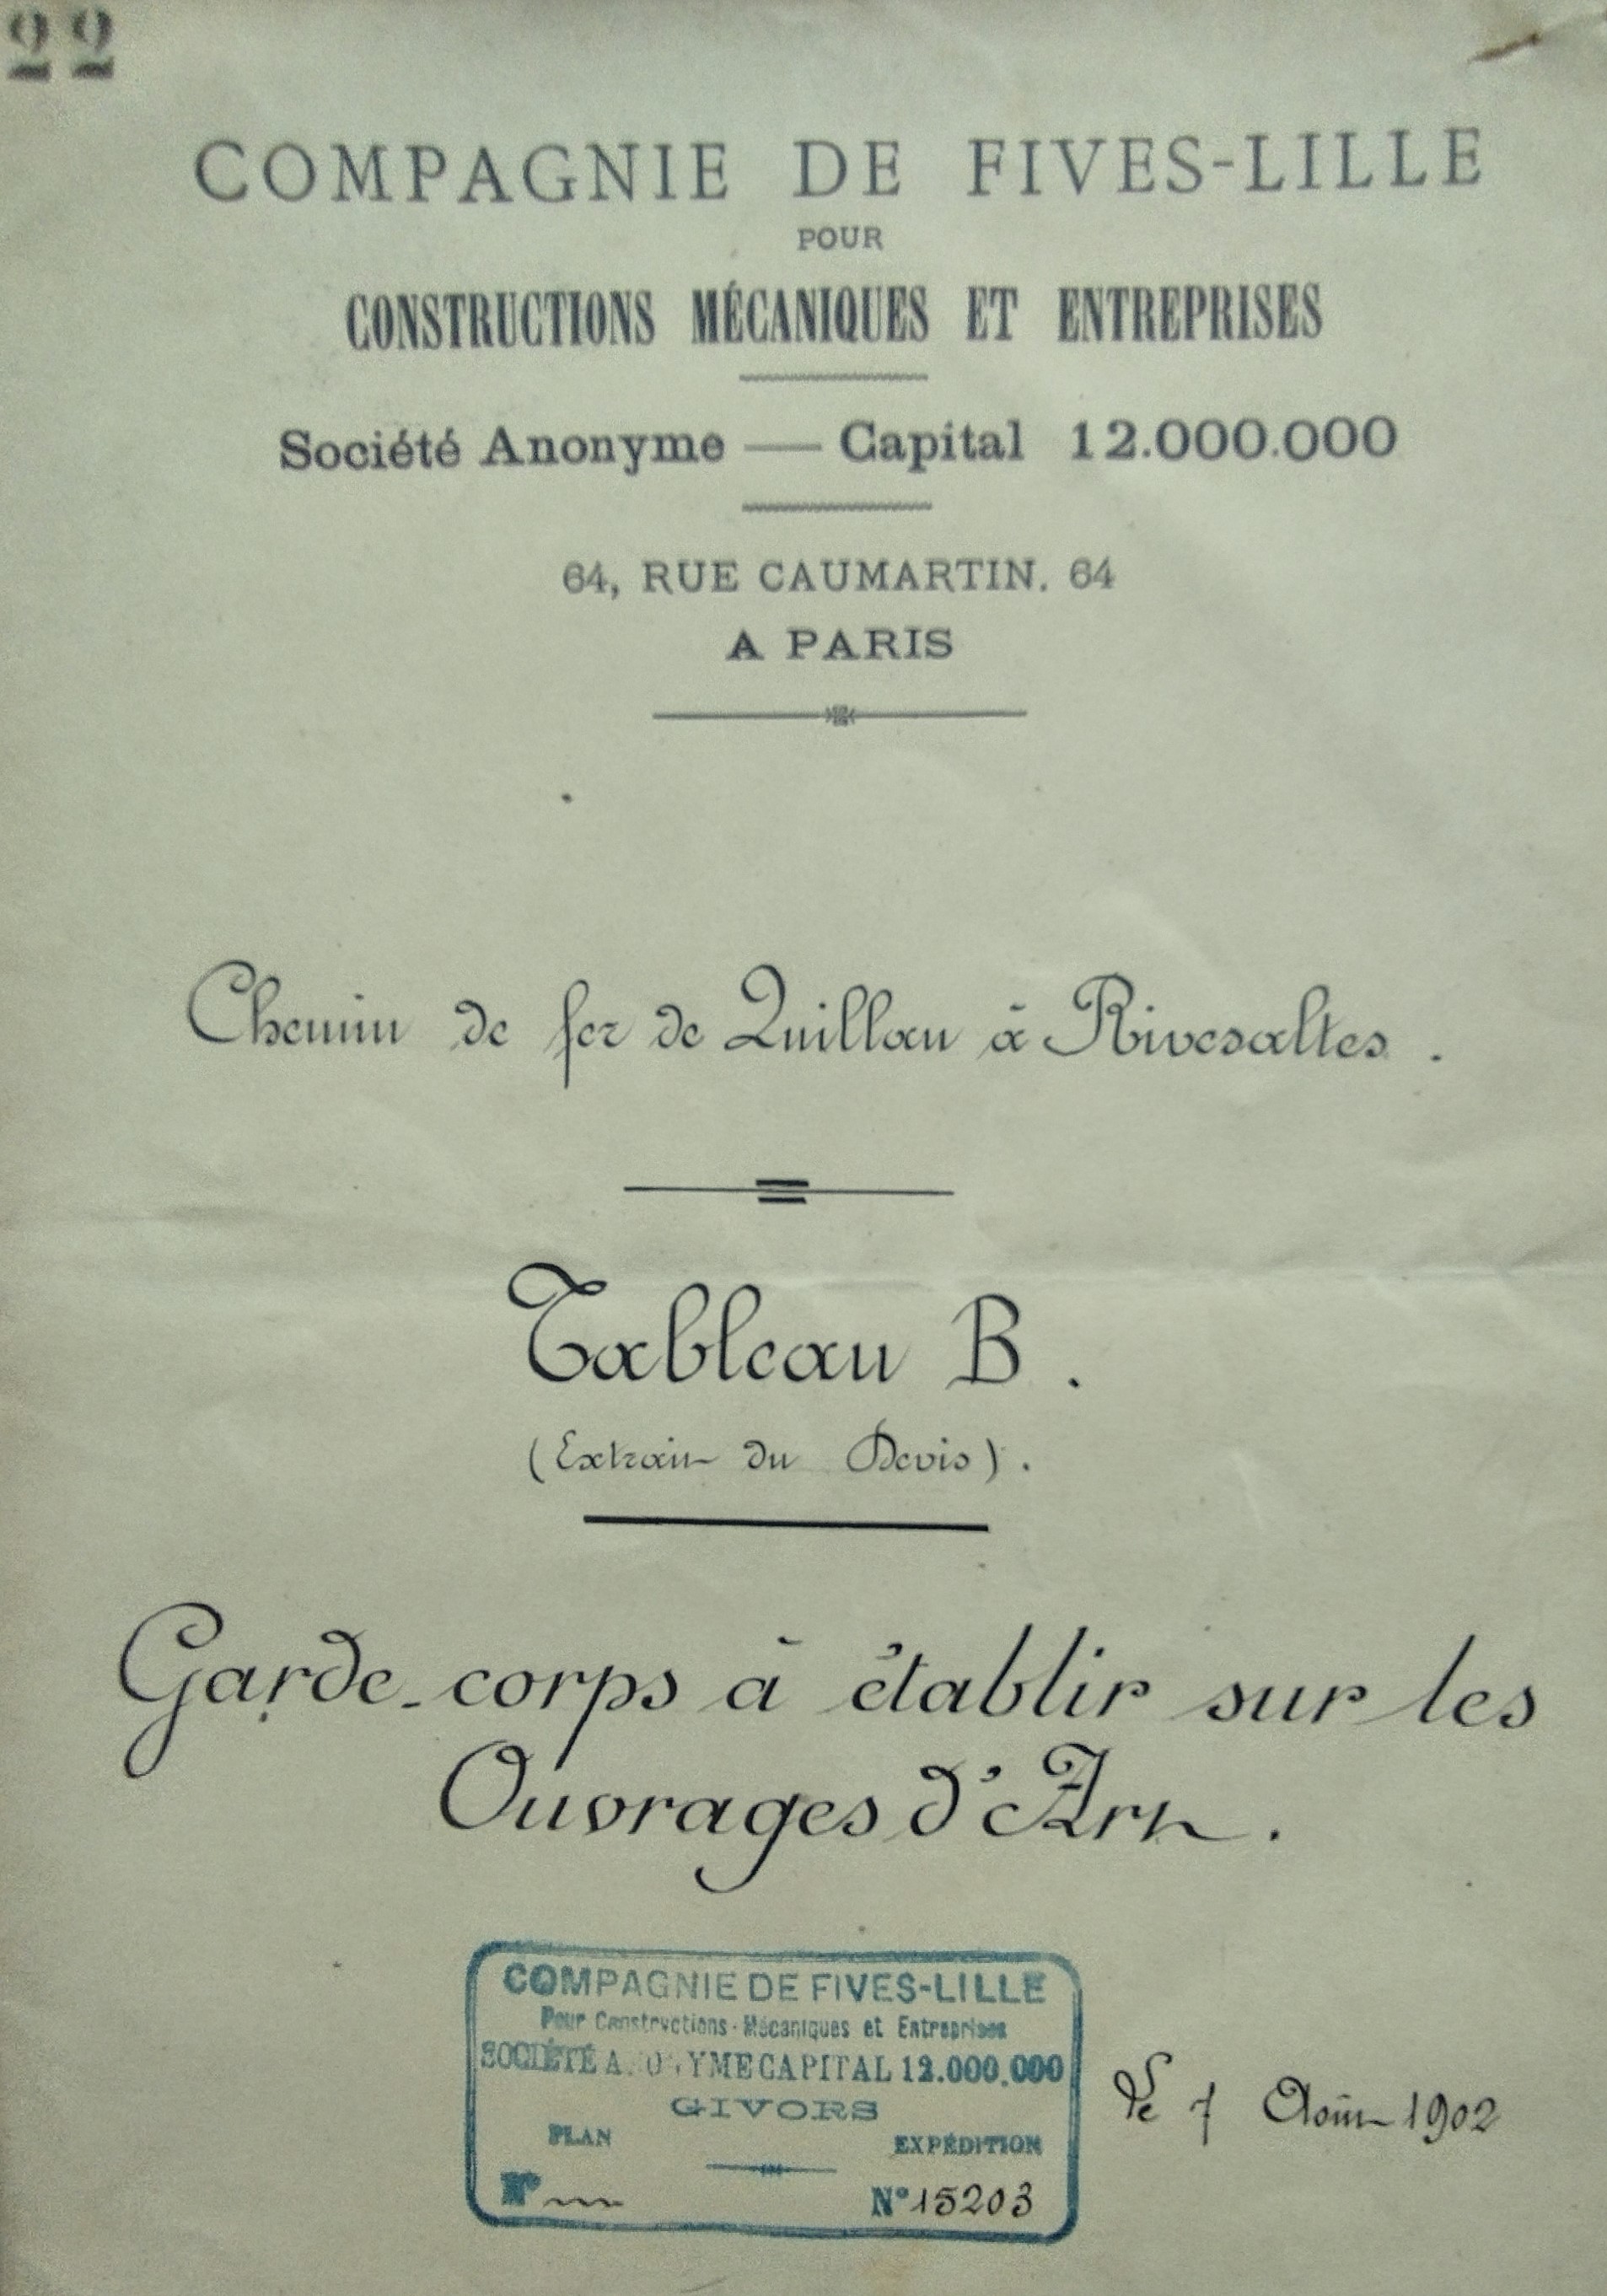 22
COMPAGNIE DE FIVES-LILLE
POUR
CONSTRUCTIONS MÉCANIQUES ET ENTREPRISES
Société Anonyme — Capital 12.000.000
64, RUE CAUMARTIN. 64
A PARIS
Chemin de fer de Quillan à Rivesaltes.
Tableau B.
(Extrait du Devis).
Garde-corps à établir sur les
Ouvrages d'Art.
COMPAGNIE DE FIVES-LILLE
Pour Constructions-Mécaniques et Entreprises
SOCIÉTÉ ANONYME CAPITAL 12.000.000
GIVORS
PLAN EXPÉDITION
N° N° 15203
Le 7 Août 1902